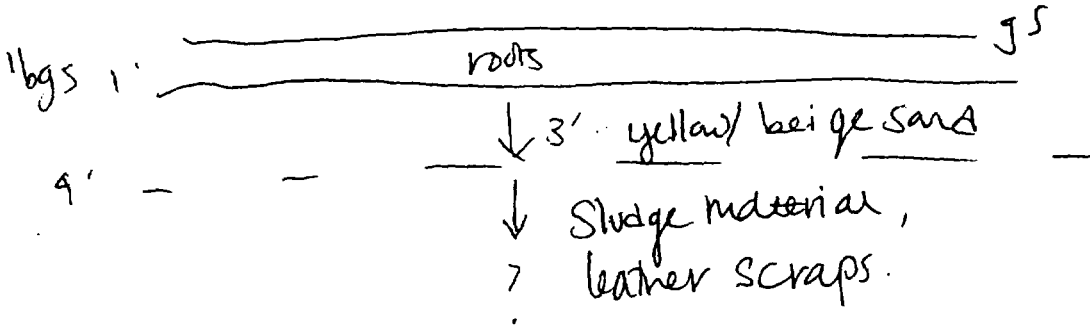 gs
roots
"bgs 1'
3' yellow/ beige sand
4'
Sludge material,
? leather scraps.